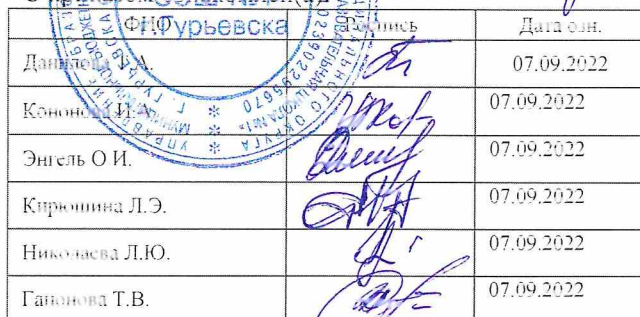 ФИО Подпись Дата озн.
г.Гурьевска
Данилова А. 07.09.2022
Кононова И.А. 07.09.2022
Энгель О И. 07.09.2022
Кирюшина Л.Э. 07.09.2022
Николаева Л.Ю. 07.09.2022
Гапонова Т.В. 07.09.2022